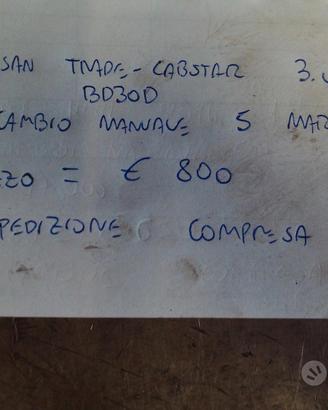 SAN TRADE - CABSTAR 3.
BD30D
CAMBIO MANUALE 5 MAR
EZZO = € 800
PEDIZIONE COMPRESA